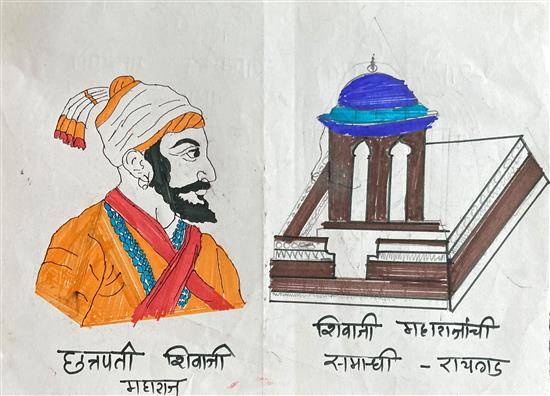 छत्रपती शिवाजी
महाराज
शिवाजी महाराजांची
समाधी - रायगड